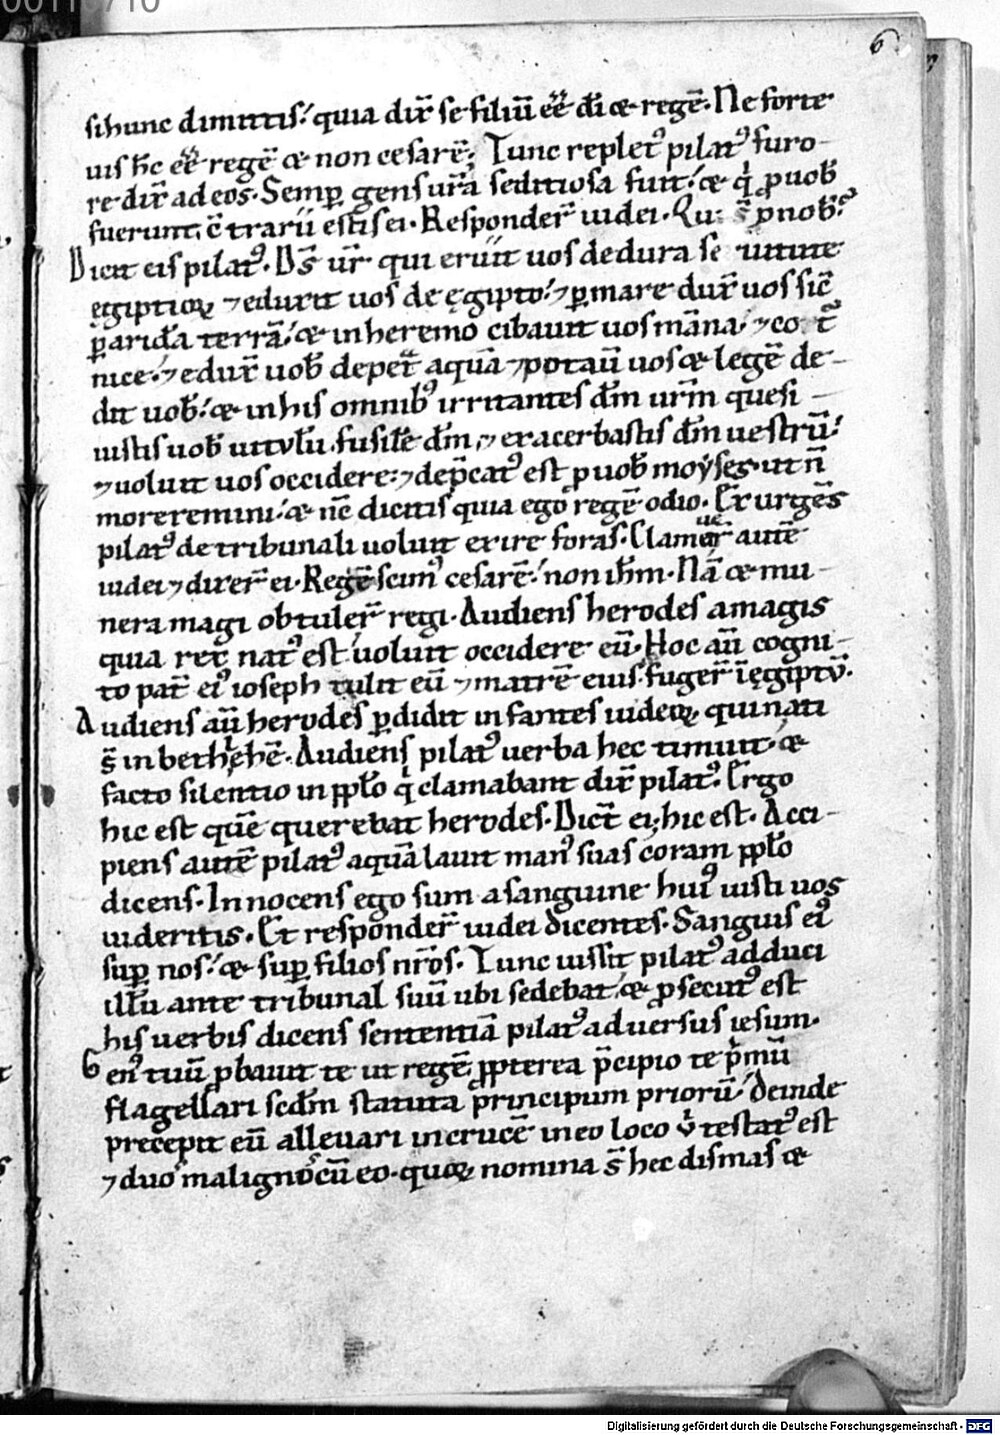 6
si hunc dimittis. quia dix̄ se filiū eē̄ dī ⁊ regē. Ne forte
uis hc̄ eē̄ regē ⁊ non cesarē. Tunc replet᷒ pilat᷒ furo-
re dix̄ ad eos. Semp̱ gens ur̄a seditiosa fuit. ⁊ qͥ ꝓ uob̄
fuerunt c̄trarii estis ei. Responder̄ iudei. Qui s̄ ꝓ nob̄.
Dicit eis pilat᷒. Ds̄ ur̄ qui eruit uos de dura se uitute
ęgiptioꝝ ⁊ eduxit uos de ęgipto. ⁊ ꝑ mare dux̄ uos sic̄
ꝑ arida terrā. ⁊ in heremo cibauit uos māna. ⁊ cot̄
nice. ⁊ edux̄ uob̄ de pet̄ aquā ⁊ potau̅ uos ⁊ legē de-
dit uob̄. ⁊ in his omnib᷒ irritantes dm̄ urm̄ quesi-
uistis uob̄ uitvlū fusile dm̄, ⁊ exacerbastis dm̄ uestrū.
⁊ uoluit uos occidere. ⁊ dep̄cat᷒ est ꝓ uob̄ moẏses. ut n̄
moreremini. ⁊ nc̄ dicitis quia ego regē odio. Exurgēs
pilat᷒ de tribunali uoluit exire foras. Clamauer̄ autē
iudei ⁊ dixer̄ ei. Regē scim᷒ cesarē. non ihm̄. Nā ⁊ mu-
nera magi obtuler̄ regi. Audiens herodes a magis
quia rex nat᷒ est uoluit occidere eū. Hoc aū cogni-
to pat̄ ei᷒ ioseph tulit eū ⁊ matrē eius. fuger̄ ī ęgiptv̄.
Audiens aū herodes ꝑdidit infantes iudeoꝝ qui nati
s̄ in bethlehē. Audiens pilat᷒ uerba hec timuit. ⁊
facto silentio in ppl̄o qͥ clamabant dix̄ pilat᷒. Ergo
hic est quē querebat herodes. Dict̄ ei. hic est. Acci-
piens autē pilat᷒ aquā lauit man᷒ suas coram ppl̄o
dicens. Innocens ego sum a sanguine hui᷒ iusti uos
uideritis. Et responder̄ iudei dicentes. Sanguis ei᷒
suꝑ nos. ⁊ suꝑ filios nr̄os. Tunc iussit pilat᷒ adduci
illū ante tribunal suū ubi sedebat. ⁊ ꝓsecut᷒ est
his uerbis dicens sententiā pilat᷒ aduersus iesum.
Gen᷒ tuū ꝓbauit te ut regē ꝓpterea p̄cipio te pͥmū
flagellari scdm̄ statuta principum priorū. deinde
precepit eū alleuari in crucē in eo loco vͥ testat᷒ est
⁊ duo malignos cū eo. quoꝝ nomina s̄ hec dismas ⁊
Digitalisierung gefördert durch die Deutsche Forschungsgemeinschaft - DFG